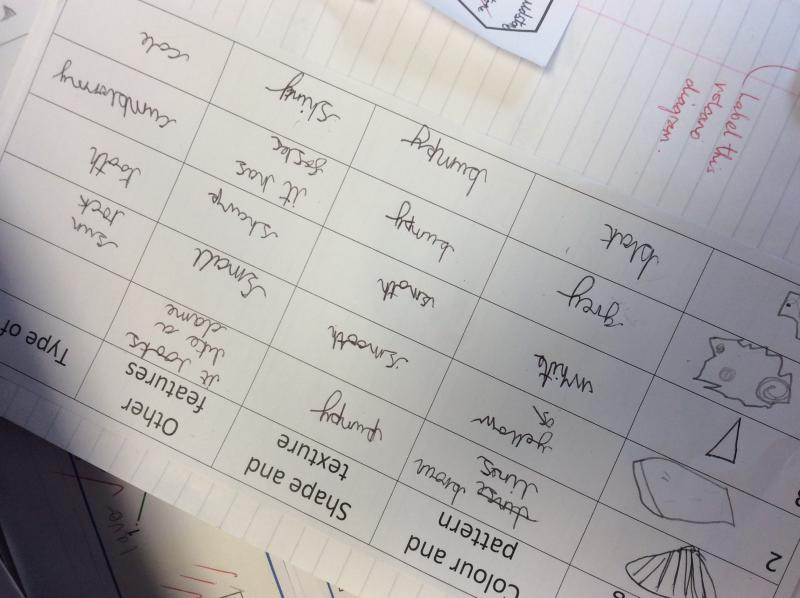 Colour and
pattern
Shape and
texture
Other
features
Type of
brown
lines
pumpy
it looks
like a
clame
2
yellow
or
smooth
small
sun
rock
3
white
smoth
sharp
tooth
grey
bumpy
it has
blak
bumpy
shiny
cole
Label this
volcano
diagram.
lava